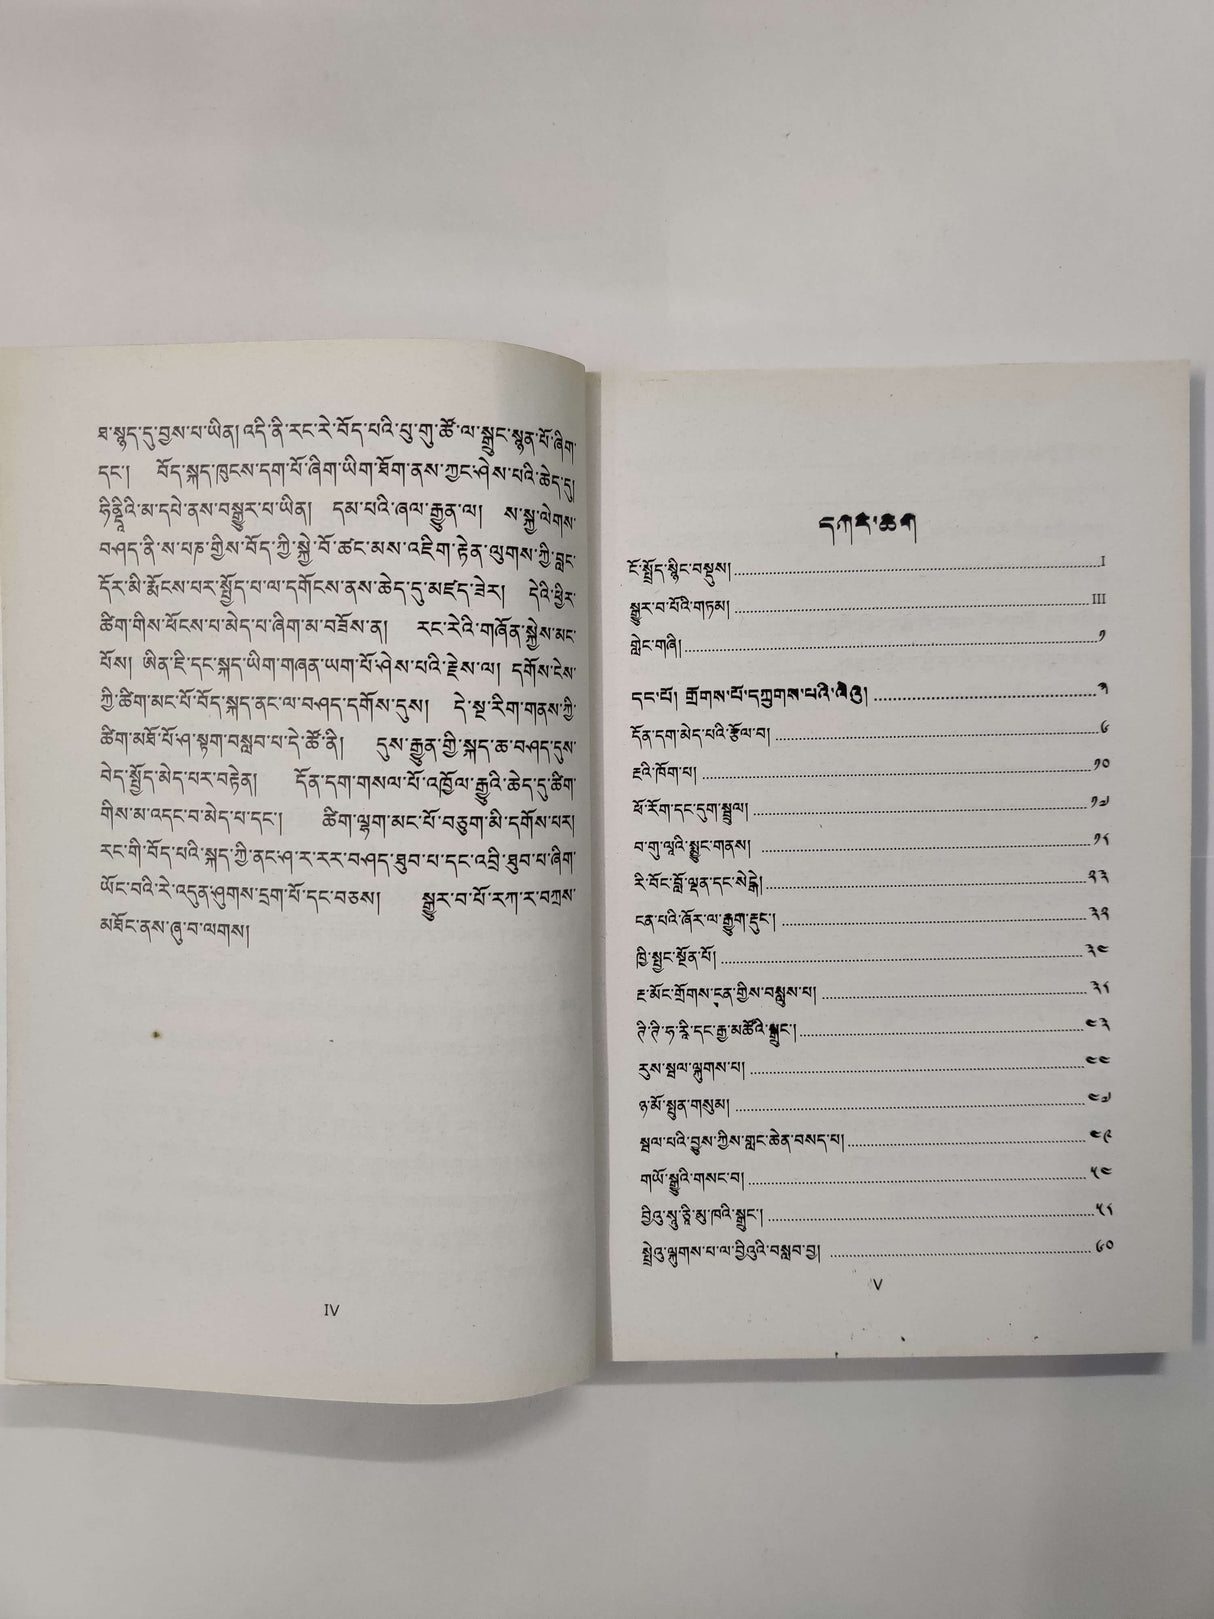 ཐ་སྙད་དུ་བྱས་པ་ཡིན། འདི་ནི་རང་རེ་བོད་པའི་ཕྲུ་གུ་ཚོ་ལ་སྒྲུང་སྙན་པོ་ཞིག་
དང་། བོད་སྐད་ཁུངས་དག་པོ་ཞིག་ཡིག་ཐོག་ནས་ཀྱང་ཤེས་པའི་ཆེད་དུ།
ཧིནྡཱིའི་མ་དཔེ་ནས་བསྒྱུར་པ་ཡིན། དམ་པའི་ཞལ་རྒྱུན་ལ། ས་སྐྱ་ལེགས་
བཤད་ནི་ས་པཎ་གྱིས་བོད་ཀྱི་སྐྱེ་བོ་ཚང་མས་འཇིག་རྟེན་ལུགས་ཀྱི་བླང་
དོར་མི་རྨོངས་པར་སྤྱོད་པ་ལ་དགོངས་ནས་ཆེད་དུ་མཛད་ཟེར། དེའི་ཕྱིར་
ཚིག་གིས་ཕོངས་པ་མེད་པ་ཞིག་མ་བཟོས་ན། རང་རེའི་གཞོན་སྐྱེས་མང་
པོས། ཨིན་ཇི་དང་སྐད་ཡིག་གཞན་ཡག་པོ་ཤེས་པའི་རྗེས་ལ། དགོས་ངེས་
ཀྱི་ཚིག་མང་པོ་བོད་སྐད་ནང་ལ་བཤད་དགོས་དུས། དེ་སྔ་རིག་གནས་ཀྱི་
ཚིག་མཐོ་པོ་ཤ་སྟག་བསླབ་པ་དེ་ཚོ་ནི། དུས་རྒྱུན་གྱི་སྐད་ཆ་བཤད་དུས་
བེད་སྤྱོད་མེད་པར་བརྟེན། དོན་དག་གསལ་པོ་འཁྱོལ་རྒྱུའི་ཆེད་དུ་ཚིག་
གིས་མ་འདང་བ་མེད་པ་དང་། ཚིག་ལྷག་མང་པོ་བཅུག་མི་དགོས་པར།
རང་གི་བོད་པའི་སྐད་ཀྱི་ནང་ཤ་ར་རར་བཤད་ཐུབ་པ་དང་འབྲི་ཐུབ་པ་ཞིག་
ཡོང་བའི་རེ་འདུན་ཤུགས་དྲག་པོ་དང་བཅས། སྒྱུར་བ་པོ་རཀ་ར་བཀྲས་
མཐོང་ནས་ཞུ་བ་ལགས།
IV
དཀར་ཆག
ངོ་སྤྲོད་སྙིང་བསྡུས། I
སྒྱུར་བ་པོའི་གཏམ། III
གླེང་གཞི། ༡
དང་པོ། གྲོགས་པོ་དཀྲུགས་པའི་ལེའུ། ༣
དོན་དག་མེད་པའི་རྩོལ་བ། ༦
རྔའི་ཁོག་པ། ༡༠
ཕོ་རོག་དང་དུག་སྦྲུལ། ༡༧
བ་གུ་ལཱའི་སྨྱུང་གནས། ༡༨
རི་བོང་བློ་ལྡན་དང་སེངྒེ། ༢༣
ངན་པའི་ཞོར་ལ་རྒྱུག་རྡུང་། ༣༢
ཁྱི་སྤྱང་སྔོན་པོ། ༣༤
རྔ་མོང་གྲོགས་ངན་གྱིས་བསླུས་པ། ༣༨
ཊི་ཊི་ཧ་རཱི་དང་རྒྱ་མཚོའི་སྒྲུང་། ༤༣
རུས་སྦལ་ལྐུགས་པ། ༤༤
ཉ་མོ་སྤུན་གསུམ། ༤༧
སྦལ་པའི་བྱུས་ཀྱིས་གླང་ཆེན་བསད་པ། ༤༩
གཡོ་སྒྱུའི་གསང་བ། ༥༤
བྱིའུ་སཱུ་ཙཱི་མུ་ཁའི་སྒྲུང་། ༥༨
སྤྲེའུ་ལྐུགས་པ་ལ་བྱིའུའི་བསླབ་བྱ། ༦༠
V